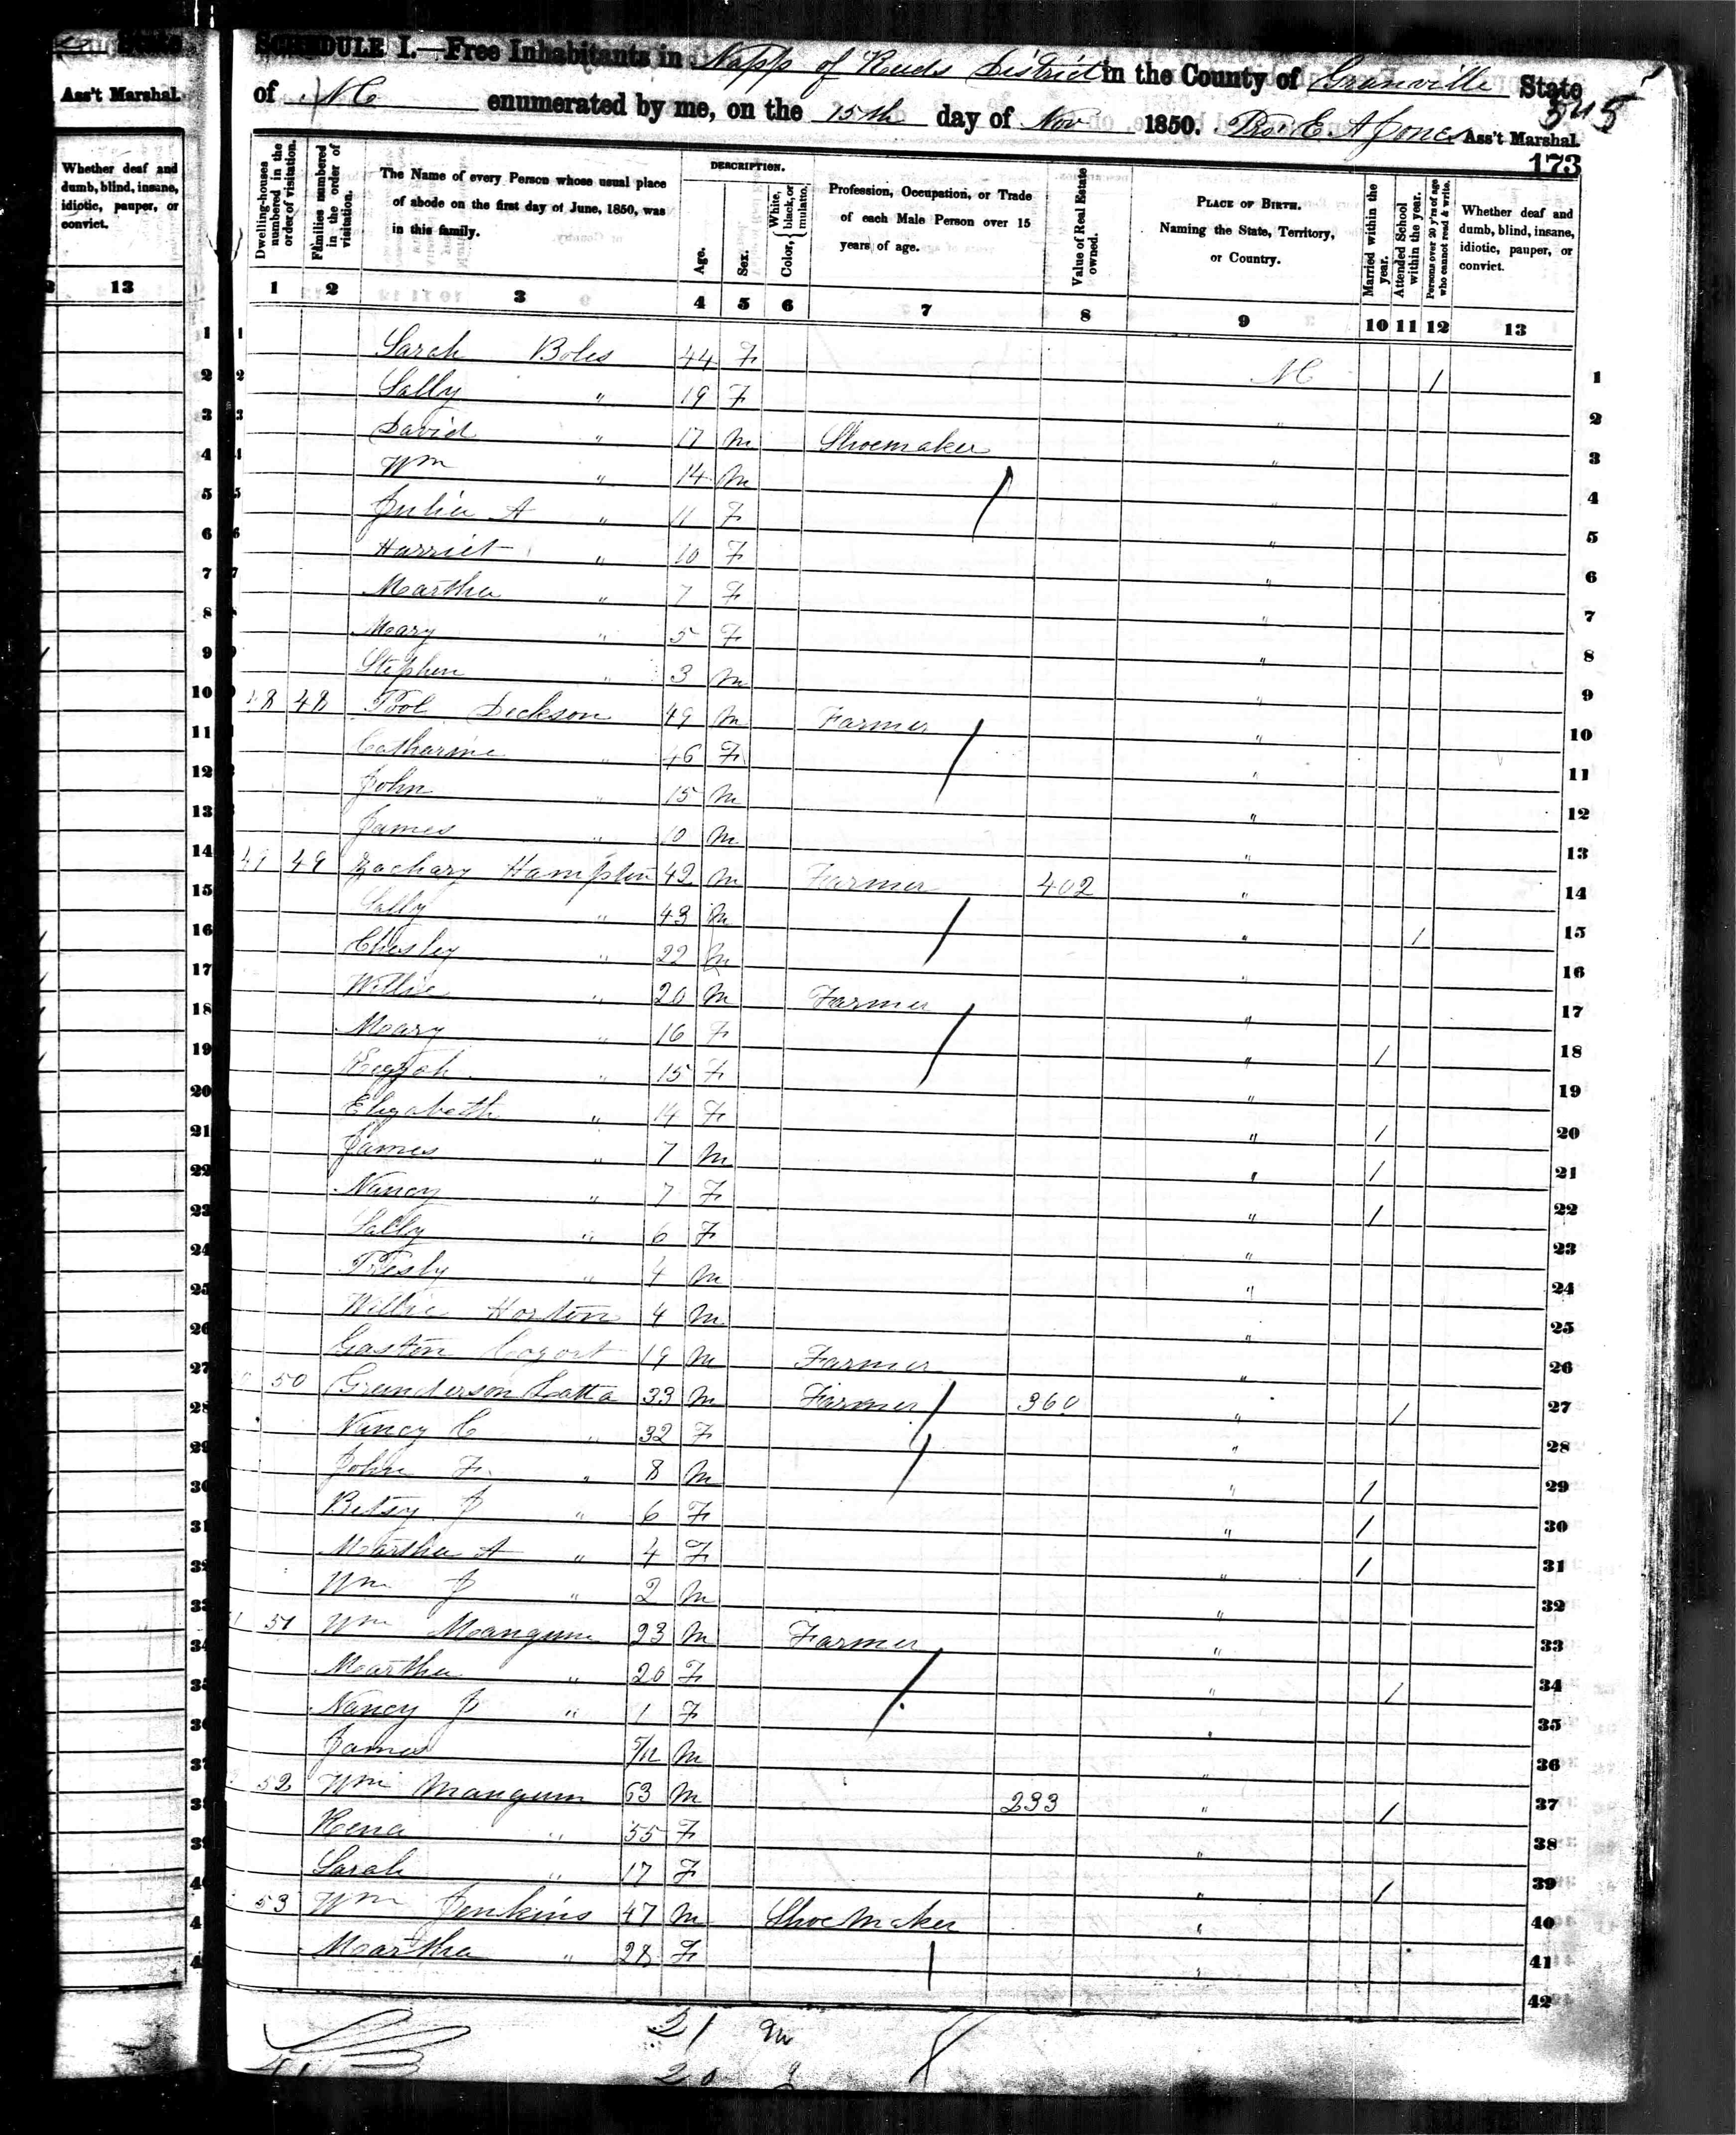 State
Ass't Marshal.
Whether deaf and
dumb, blind, insane,
idiotic, pauper, or
convict.
13
SCHEDULE I.—Free Inhabitants in Napp of Reeds District in the County of Granville State
of NC enumerated by me, on the 15th day of Nov 1850. E A Jones Ass't Marshal.
345
173
Dwelling-houses numbered in the order of visitation.
Families numbered in the order of visitation.
The Name of every Person whose usual place
of abode on the first day of June, 1850, was
in this family.
DESCRIPTION.
Age.
Sex.
Color, { White, black, or mulatto.
Profession, Occupation, or Trade
of each Male Person over 15
years of age.
Value of Real Estate owned.
PLACE OF BIRTH.
Naming the State, Territory,
or Country.
Married within the year.
Attended School within the year.
Persons over 20 y'rs of age who cannot read & write.
Whether deaf and
dumb, blind, insane,
idiotic, pauper, or
convict.
1 2 3 4 5 6 7 8 9 10 11 12 13
1 Sarah Boles 44 F NC / 1
2 Sally " 19 F " 2
3 David " 17 M Shoemaker " 3
4 Wm " 14 M " 4
5 Julia A " 11 F " 5
6 Harriet " 10 F " 6
7 Martha " 7 F " 7
8 Mary " 5 F " 8
9 Stephen " 3 M " 9
10 48 48 Pool Dickson 49 M Farmer " 10
11 Catharine " 46 F " 11
12 John " 15 M " 12
13 James " 10 M " 13
14 49 49 Zachary Hampton 42 M Farmer 402 " 14
15 Sally " 43 M " / 15
16 Chesley " 22 M " 16
17 Willie " 20 M Farmer " 17
18 Mary " 16 F " / 18
19 " 15 F " 19
20 Elizabeth " 14 F " / 20
21 James " 7 M " / 21
22 Nancy " 7 F " / 22
23 Sally " 6 F " 23
24 Presly " 4 M " 24
25 Willie Horton 4 M " 25
26 Gaston 19 M Farmer " 26
27 50 Grunderson Latta 33 M Farmer 360 " / 27
28 Nancy C " 32 F " 28
29 John F. " 8 M " / 29
30 Betsy J " 6 F " / 30
31 Martha A " 4 F " / 31
32 Wm J " 2 M " 32
33 51 Wm Mangum 23 M Farmer " 33
34 Martha " 20 F " / 34
35 Nancy J " 1 F " 35
36 James 5/12 M " 36
37 52 Wm Mangum 63 M 233 " / 37
38 Hena " 55 F " 38
39 Sarah " 17 F " / 39
40 53 Wm Jenkins 47 M Shoe Maker " 40
41 Martha " 28 F " 41
42
21 M
20